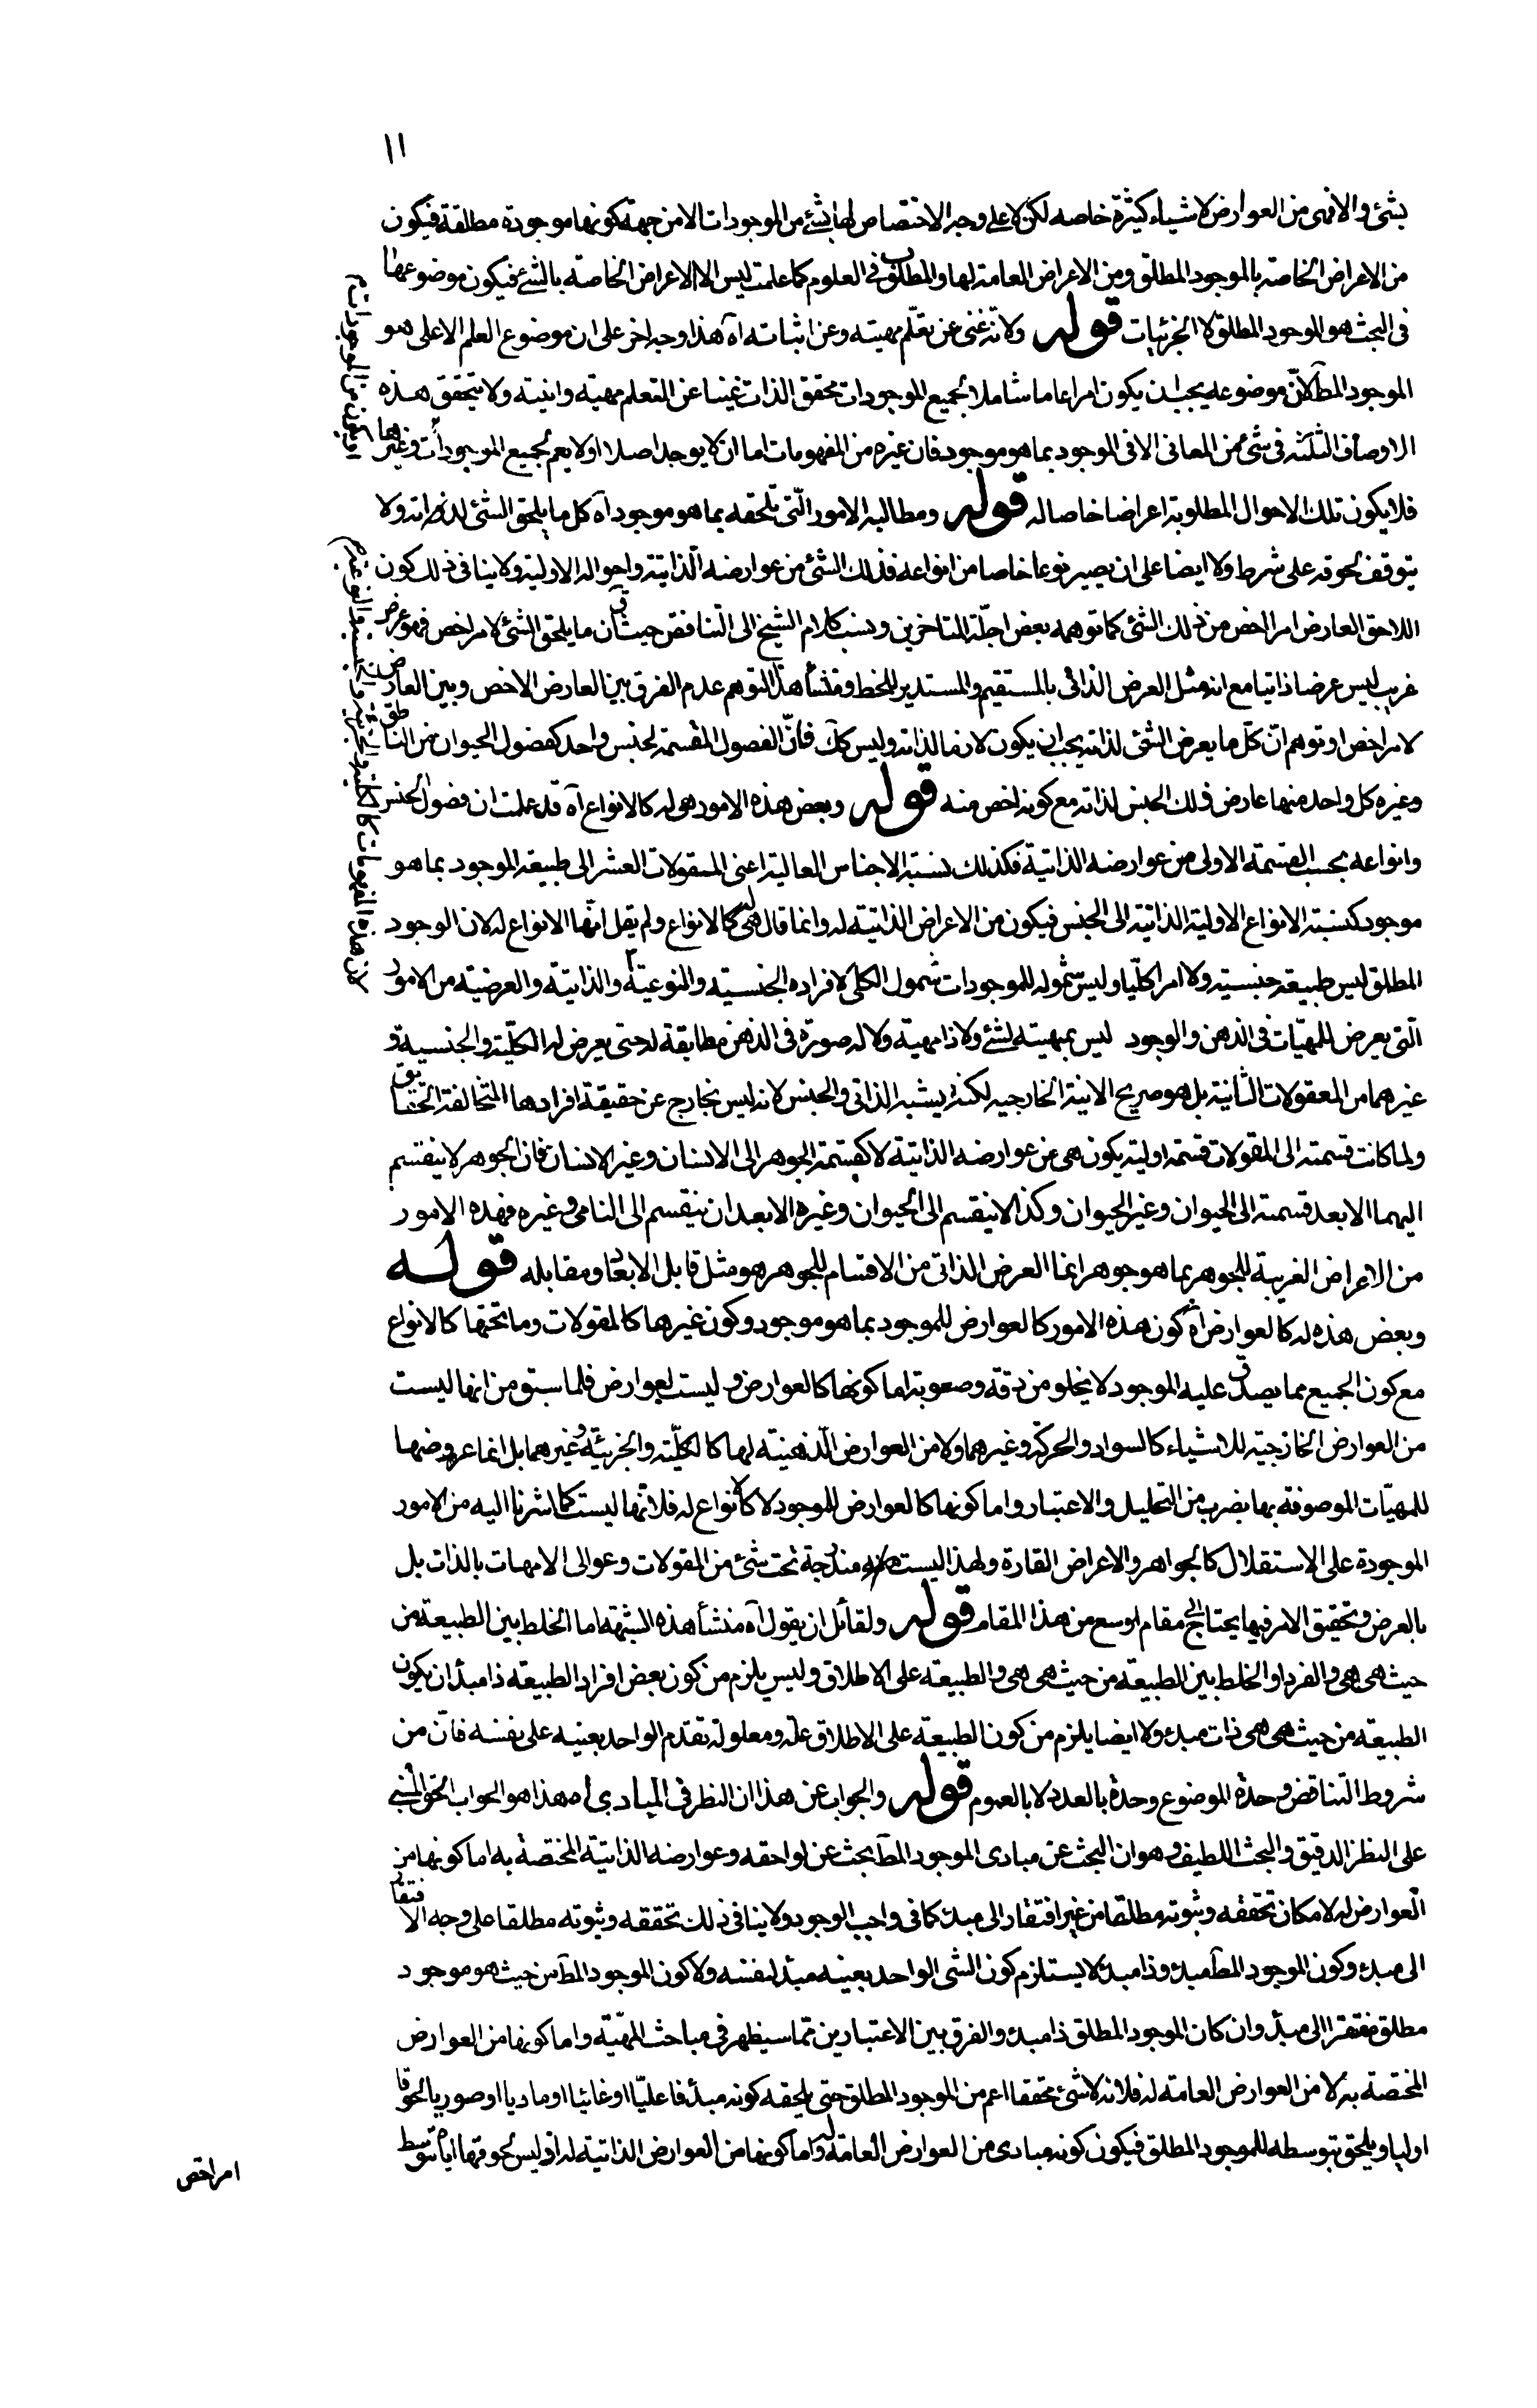 ١١
بشئ والا فهى من العوارض لاشياء كثيرة خاصه لكن لا على وجه الاختصاص لها بشئ من الموجودات الا من جهة كونها موجودة مطلقة فيكون
من الاعراض الخاصة بالموجود المطلق ومن الاعراض العامة لها والمطلوب فى العلوم كما علمت ليس الا الاعراض الخاصه بالشئ فيكون موضوعها
فى البحث هو الموجود المطلق لا الجزئيات قوله ولانه غنى عن تعلّم مهيته وعن اثباته آه هذا وجه اخر على ان موضوع العلم الاعلى هو
الموجود المط لانّ موضوعه يجب ان يكون امرا عاما شاملا لجميع الموجودات محقق الذات غنيا عن التعلم مهيّة وانيته ولا يتحقق هذه
الاوصاف الثلثه فى شئ من المعانى الا فى الموجود بما هو موجود فان غيره من المفهومات اما ان لا يوجد اصلا او لا يعم لجميع الموجودات وغيرهما
فلا يكون تلك الاحوال المطلوبة اعراضا خاصا له قوله ومطالبه الامور الّتى تلحقه بما هو موجود آه كل ما يلحق الشئ لذاته ولا
يتوقف لحوقه على شرط ولا ايضا على ان يصير نوعا خاصا من انواعه فذلك الشئ من عوارضه الذاتية واحواله الاولية ولا ينافى ذلك كون
اللاحق العارض امرا اخص من ذلك الشئ كما توهمه بعض اجلّة المتاخرين ونسب كلام الشيخ الى التناقض حيث قال ان ما يلحق الشئ لامر اخص فهو عرض
غريب ليس عرضا ذاتيا مع انه مثل العرض الذاتى بالمستقيم والمستدير للخط ومنشأ هذا التوهم عدم الفرق بين العارض الاخص وبين العارض
لامر اخص او توهم انّ كلّ ما يعرض الشئ لذاته يجب ان يكون لازما لذاته وليس كك فانّ الفصول المقسمة لجنس واحد كفصول الحيوان من الناطق
وغيره كل واحد منها عارض ذلك الجنس لذاته مع كونه اخص منه قوله وبعض هذه الامور هى له كالانواع آه قد علمت ان فصول الجنس
وانواعه بحسب القسمة الاولى من عوارضه الذاتية فكذلك نسبة الاجناس العالية اعنى المقولات العشر الى طبيعة الموجود بما هو
موجود كنسبة الانواع الاولية الذاتية الى الجنس فيكون من الاعراض الذاتية له وانما قال هى له كالانواع ولم يقل انّها الانواع له لان الوجود
المطلق ليس طبيعة جنسية ولا امرا كلّيا وليس شموله للموجودات شمول الكلى لافراده الجنسيته والنوعية والذاتية والعرضية من الامور
الّتى يعرض للمهيّات فى الذهن والوجود ليس بمهيته لشئ ولا ذا مهية ولا له صورة فى الذهن مطابقة له حتى يعرض له الكلّية والجنسية و
غيرهما من المعقولات الثانية بل هو صريح الانية الخارجيه لكنه يشبه الذاتى والجنس لانه ليس بخارج عن حقيقة افرادها المتخالفة الحقايق
ولما كانت قسمته الى المقولات قسمة اولية يكون هى من عوارضه الذاتية لا كقسمة الجوهر الى الانسان وغير الانسان فان الجوهر لا ينقسم
اليهما الا بعد قسمته الى الحيوان وغير الحيوان وكذا لا ينقسم الى الحيوان وغيره الا بعد ان ينقسم الى النامى وغيره فهذه الامور
من الاعراض الغريبة للجوهر بما هو جوهر انما العرض الذاتى من الاقسام للجوهر هو مثل قابل الابعاد ومقابله قوله
وبعض هذه له كالعوارض آه كون هذه الامور كالعوارض للموجود بما هو موجود وكون غيرها كالمقولات وما تحتها كالانواع
مع كون الجميع مما يصدق عليه الموجود لا يخلو من دقة وصعوبة اما كونها كالعوارض وليست لعوارض فلما سبق من انها ليست
من العوارض الخارجية للاشياء كالسواد والحركة وغيرهما ولا من العوارض الذهنيته لها كالكلّية والجزئية وغيرهما بل انما عروضها
للمهيّات الموصوفة بها بضرب من التحليل والاعتبار واما كونها كالعوارض للموجود لا كالانواع له فلانّها ليست كما اشرنا اليه من الامور
الموجودة على الاستقلال كالجواهر والاعراض القارة ولهذا ليست هذه مندرجة تحت شئ من المقولات وعوالى الامهات بالذات بل
بالعرض وتحقيق الامر فيها يحتاج الى مقام اوسع من هذا المقام قوله ولقائل ان يقول آه منشأ هذه الشبهة اما الخلط بين الطبيعة من
حيث هى هى والفرد او الخلط بين الطبيعة من حيث هى هى والطبيعة على الاطلاق وليس يلزم من كون بعض افراد الطبيعة ذا مبدأ ان يكون
الطبيعة من حيث هى هى ذات مبدء ولا ايضا يلزم من كون الطبيعة على الاطلاق علة ومعلولة تقدم الواحد بعينه على نفسه فانّ من
شروط التناقض وحدة الموضوع وحدة بالعدد لا بالعموم قوله والجواب عن هذا ان النظر فى المبادى اه هذا هو الجواب الحق المبنى
على النظر الدقيق والبحث اللطيف وهو ان البحث عن مبادى الموجود المط بحث عن لواحقه وعوارضه الذاتية المختصة به اما كونها من
العوارض له لامكان تحققه وثبوته مطلقا من غير افتقار الى مبدء كما فى واجب الوجود ولا ينافى ذلك تحققه وثبوته مطلقا على وجه الافتقار
الى مبدء وكون الموجود المط مبدء وذا مبدء لا يستلزم كون الشئ الواحد بعينه مبدأ لنفسه ولا كون الموجود المط من حيث هو موجود
مطلق مفتقرا الى مبدأ وان كان الموجود المطلق ذا مبدء والفرق بين الاعتبارين مما سيظهر فى مباحث المهيّة واما كونها من العوارض
المختصة به لا من العوارض العامة له فلانه لا شئ محققا اعم من الموجود المطلق حتى يلحقه كونه مبدأ فاعليّا او غائيا او ماديا او صوريا لحوقا
اوليا ويلحق بتوسطه للموجود المطلق فيكون كونه مبادى من العوارض العامة له واما كونها من العوارض الذاتية له اذ ليس لحوقها اياه بتوسط
امر اخص
او يكون من الموجودات م
لان هذه المفهومات كالكلية والجزئية والجنسية والنوعية م